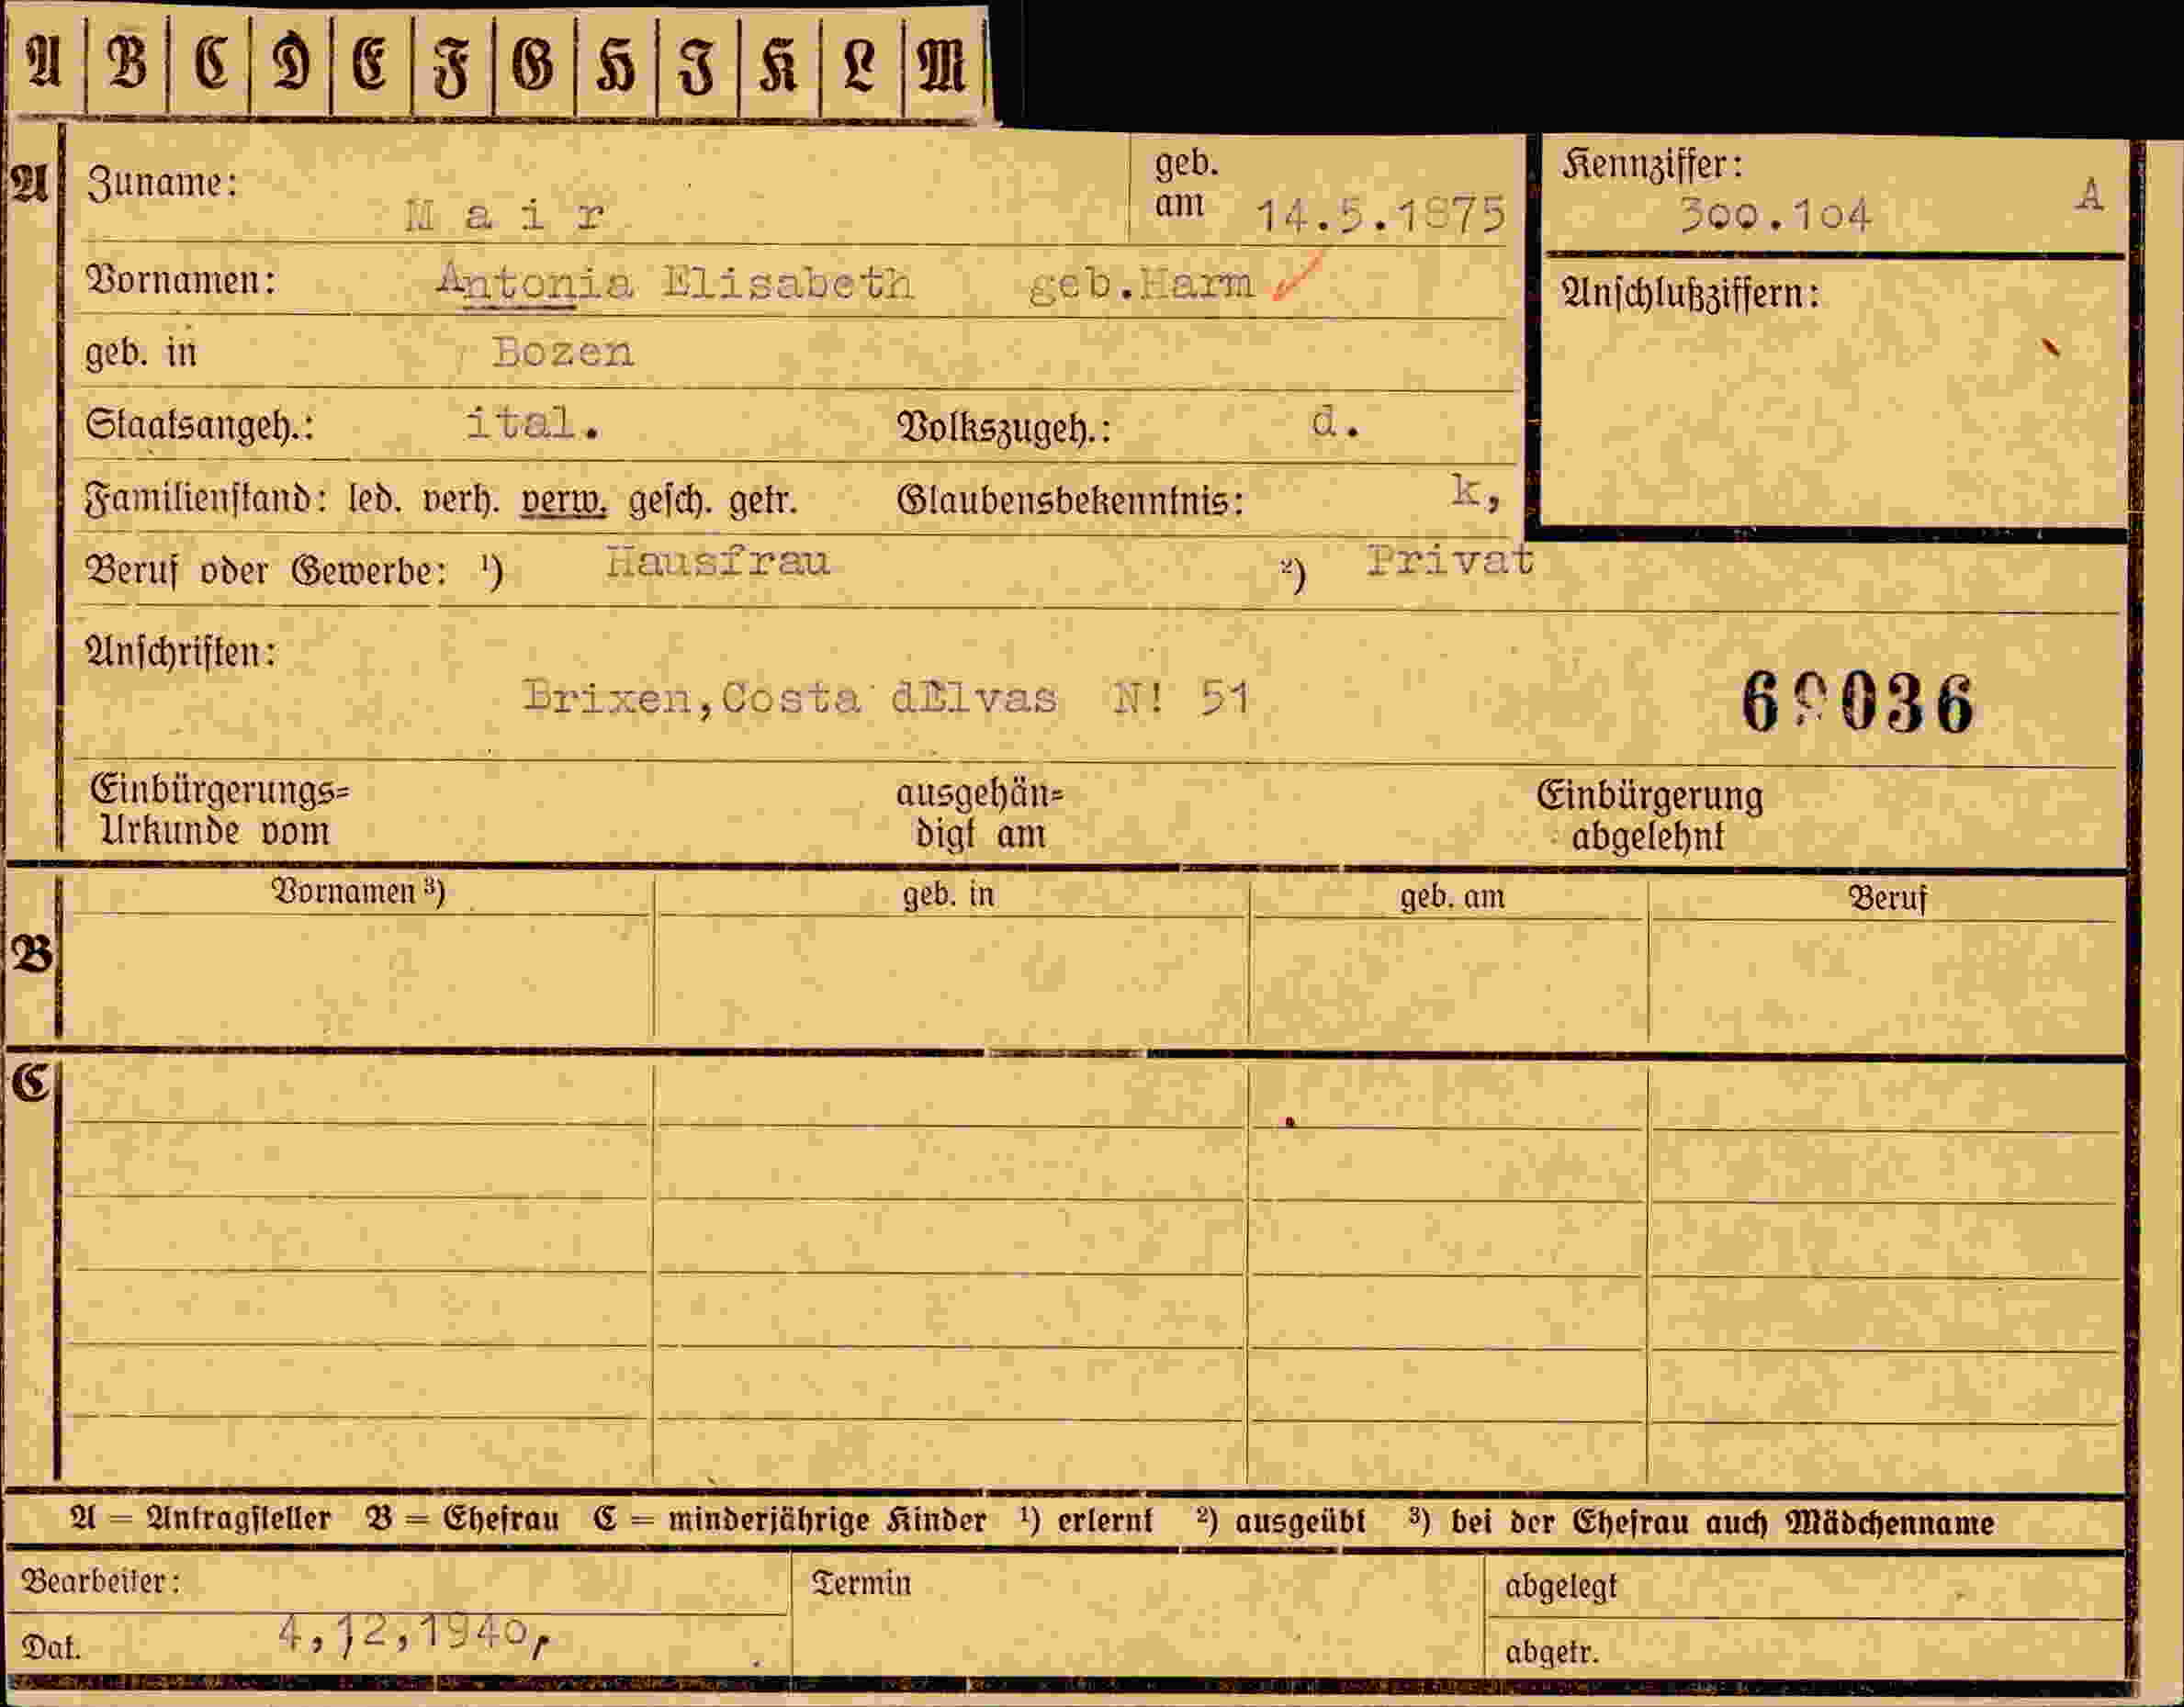 A B C D E F G H I K L M
A Zuname: Mair geb. am 14.5.1875 Kennziffer: 300.104 A
Vornamen: Antonia Elisabeth geb.Harm Anschlußziffern:
geb. in Bozen
Staatsangeh.: ital. Volkszugeh.: d.
Familienstand: led. verh. verw. gesch. getr. Glaubensbekenntnis: k,
Beruf oder Gewerbe: ¹) Hausfrau ²) Privat
Anschriften:
Brixen,Costa dElvas N! 51
Einbürgerungs= ausgehän= Einbürgerung
Urkunde vom digt am abgelehnt
Vornamen ³) geb. in geb. am Beruf
B
C
A = Antragsteller B = Ehefrau C = minderjährige Kinder ¹) erlernt ²) ausgeübt ³) bei der Ehefrau auch Mädchenname
Bearbeiter: Termin abgelegt
Dat. 4,12,1940, abgetr.